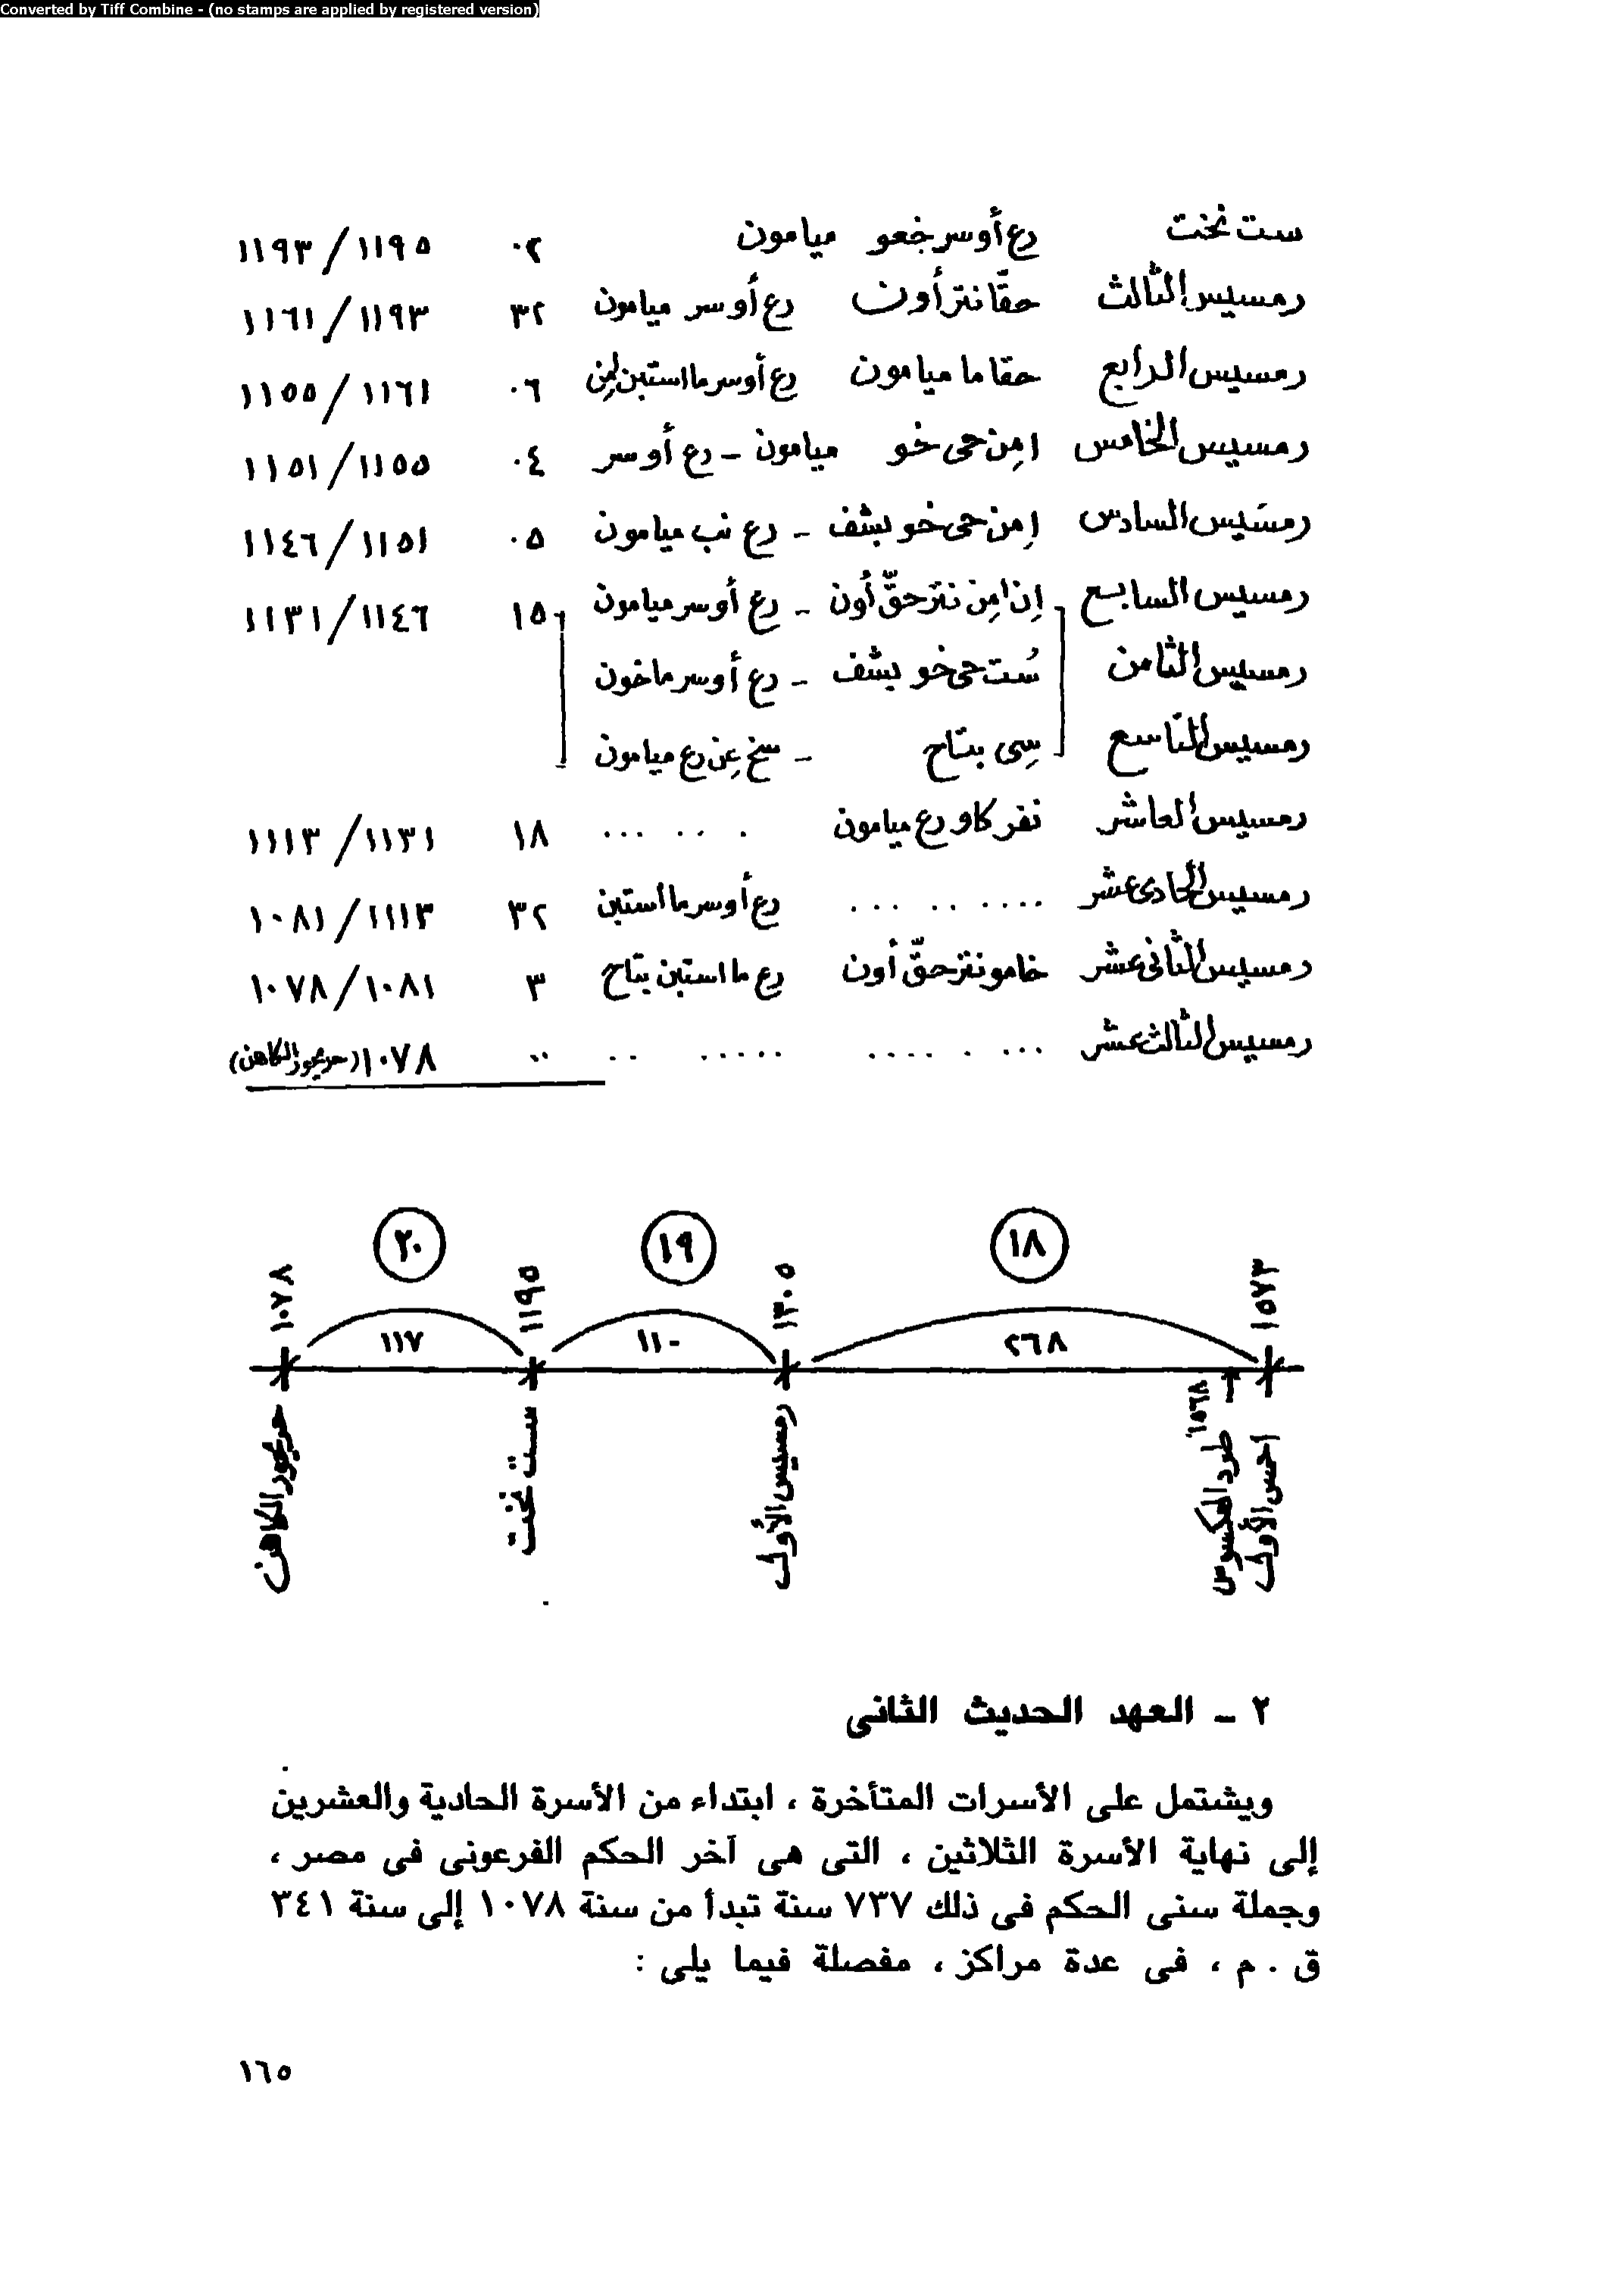 Converted by Tiff Combine - (no stamps are applied by registered version)
ست نخت رع أوسر خعو ميامون ٠٢ ١١٩٥/١١٩٣
رمسيس الثالث حقا نتر أون رع أوسر ميامون ٣٢ ١١٩٣/١١٦١
رمسيس الرابع حقا ما ميامون رع أوسر ما استبن إمن ٠٦ ١١٦١/١١٥٥
رمسيس الخامس امن حى خو ميامون – رع أوسر ٠٤ ١١٥٥/١١٥١
رمسيس السادس إمن حى خو بشف – رع نب ميامون ٠٥ ١١٥١/١١٤٦
رمسيس السابع إن امن نتر حقّ أون – رع أوسر ميامون ١٥ ١١٤٦/١١٣١
رمسيس الثامن سُت حى خو بشف – رع أوسر ما خون
رمسيس التاسع سى بتاح – سخ عن رع ميامون
رمسيس العاشر نفر كاو رع ميامون . .. . ... ١٨ ١١٣١/١١١٣
رمسيس الحادى عشر .... .. ... رع أوسر ما استبن ٣٢ ١١١٣/١٠٨١
رمسيس الثانى عشر خامو نتر حقّ أون رع ما استبن بتاح ٣ ١٠٨١/١٠٧٨
رمسيس الثالث عشر ... . .... ..... .. .. ١٠٧٨ (حريحور الكاهن)
١٨ ١٩ ٢٠
١٥٧٣ ١٣٠٥ ١١٩٥ ١٠٧٨
٢٦٨ ١١٠ ١١٧
احمس الأول
١٥٦٨ طرد الهكسوس
رمسيس الأول
ست نخت
حريحور الكاهن
٢ – العهد الحديث الثانى
ويشتمل على الأسرات المتأخرة ، ابتداء من الأسرة الحادية والعشرين
إلى نهاية الأسرة الثلاثين ، التى هى آخر الحكم الفرعونى فى مصر ،
وجملة سنى الحكم فى ذلك ٧٣٧ سنة تبدأ من سنة ١٠٧٨ إلى سنة ٣٤١
ق . م ، فى عدة مراكز ، مفصلة فيما يلى :
١٦٥